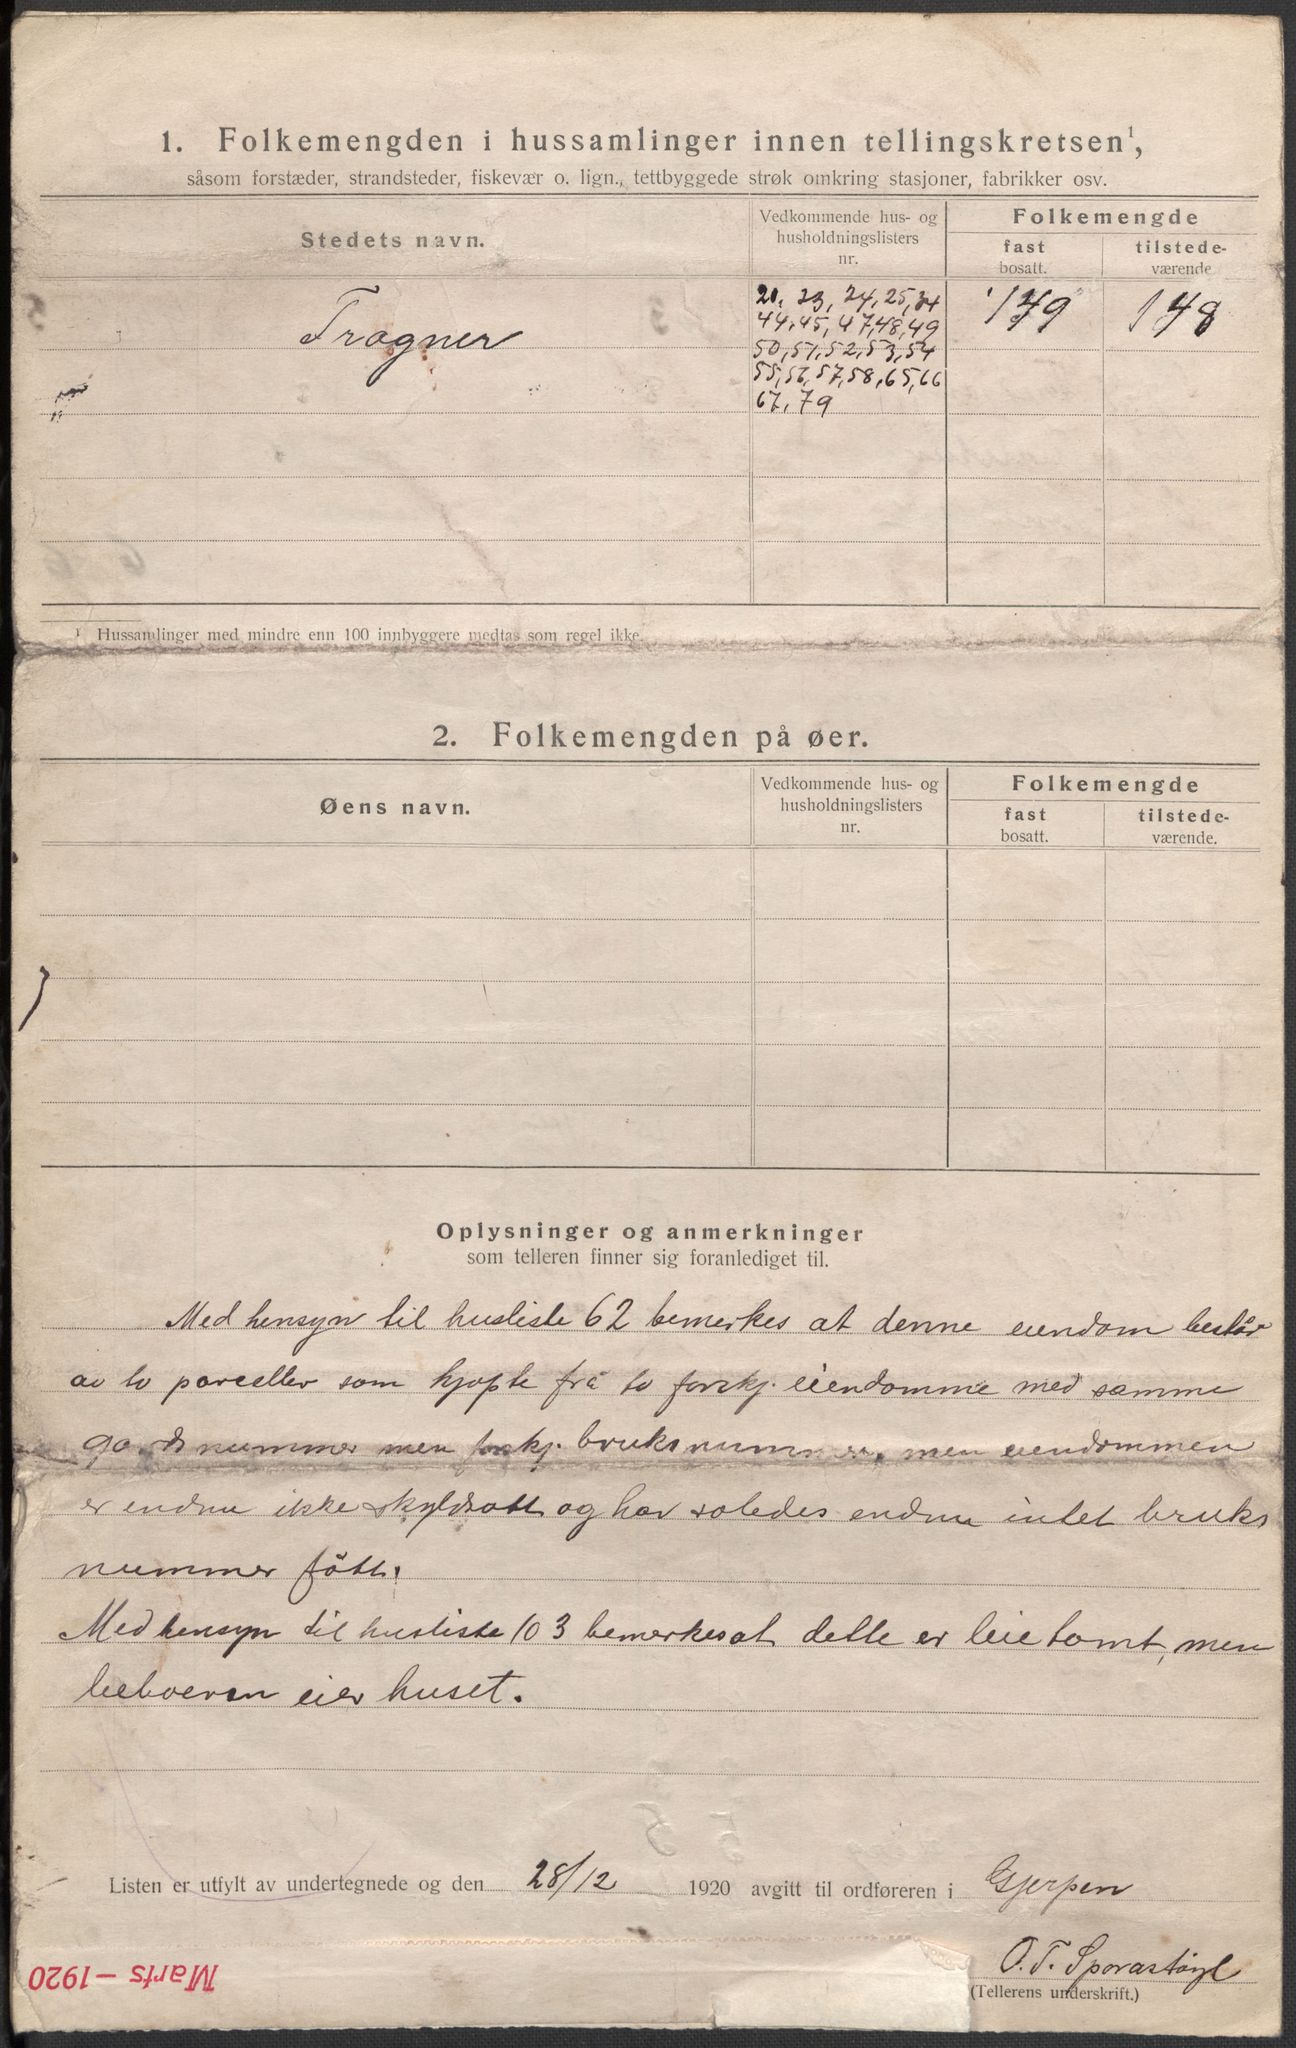 1. Folkemengden i hussamlinger innen tellingskretsen¹,
såsom forstæder, strandsteder, fiskevær o. lign., tettbyggede strøk omkring stasjoner, fabrikker osv.
Stedets navn.
Vedkommende hus- og husholdningslisters nr.
Folkemengde
fast bosatt.
tilstede-værende
Frogner
21, 23, 24, 25, 34
44, 45, 47, 48, 49
50, 51, 52, 53, 54
55, 56, 57, 58, 65, 66
67, 79
149
148
¹ Hussamlinger med mindre enn 100 innbyggere medtas som regel ikke.
2. Folkemengden på øer.
Øens navn.
Vedkommende hus- og husholdningslisters nr.
Folkemengde
fast bosatt.
tilstede-værende.
Oplysninger og anmerkninger
som telleren finner sig foranlediget til.
Med hensyn til husliste 62 bemerkes at denne eiendom består
av to parceller som kjøpte frå to forskj. eiendomme med samme
gårdsnummer men forskj. bruksnummer, men eiendommen
er endnu ikke skyldsatt og har således endnu intet bruks
nummer fått.
Med hensyn til husliste 103 bemerkes at dette er leietomt, men
beboeren eier huset.
Listen er utfylt av undertegnede og den 28/12 1920 avgitt til ordføreren i Gjerpen
O. T. Sporastøyl
(Tellerens underskrift.)
Marts – 1920